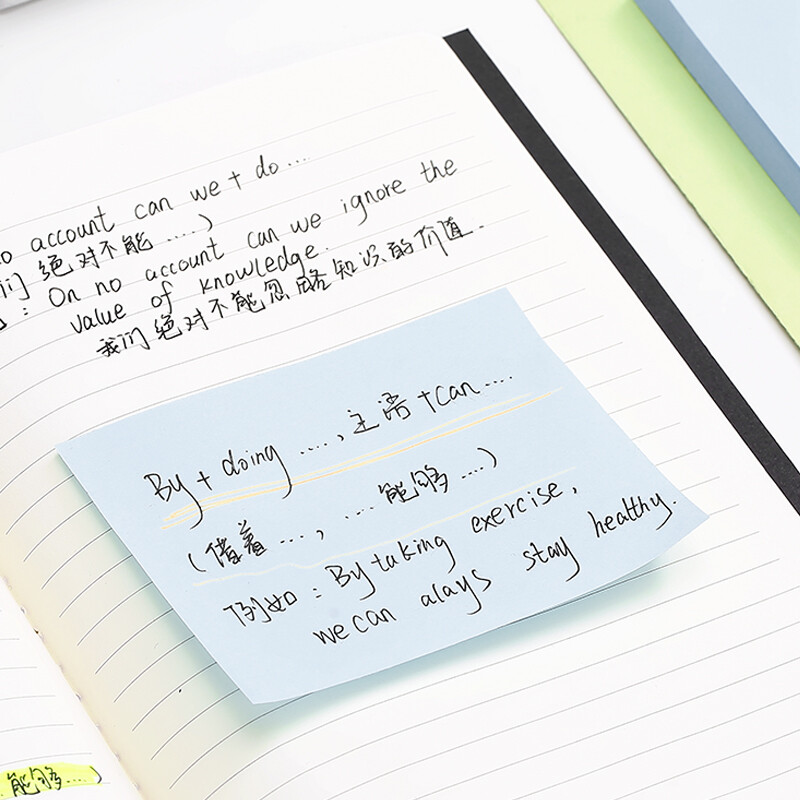 account can we + do ....
绝对不能 .....)
: On no account can we ignore the
value of knowledge.
我们绝对不能忽略知识的价值.
By + doing ....., 主语 + can .....
(借着 ...., .... 能够 ....)
例如 : By taking exercise,
we can alays stay healthy.
能够 ....)